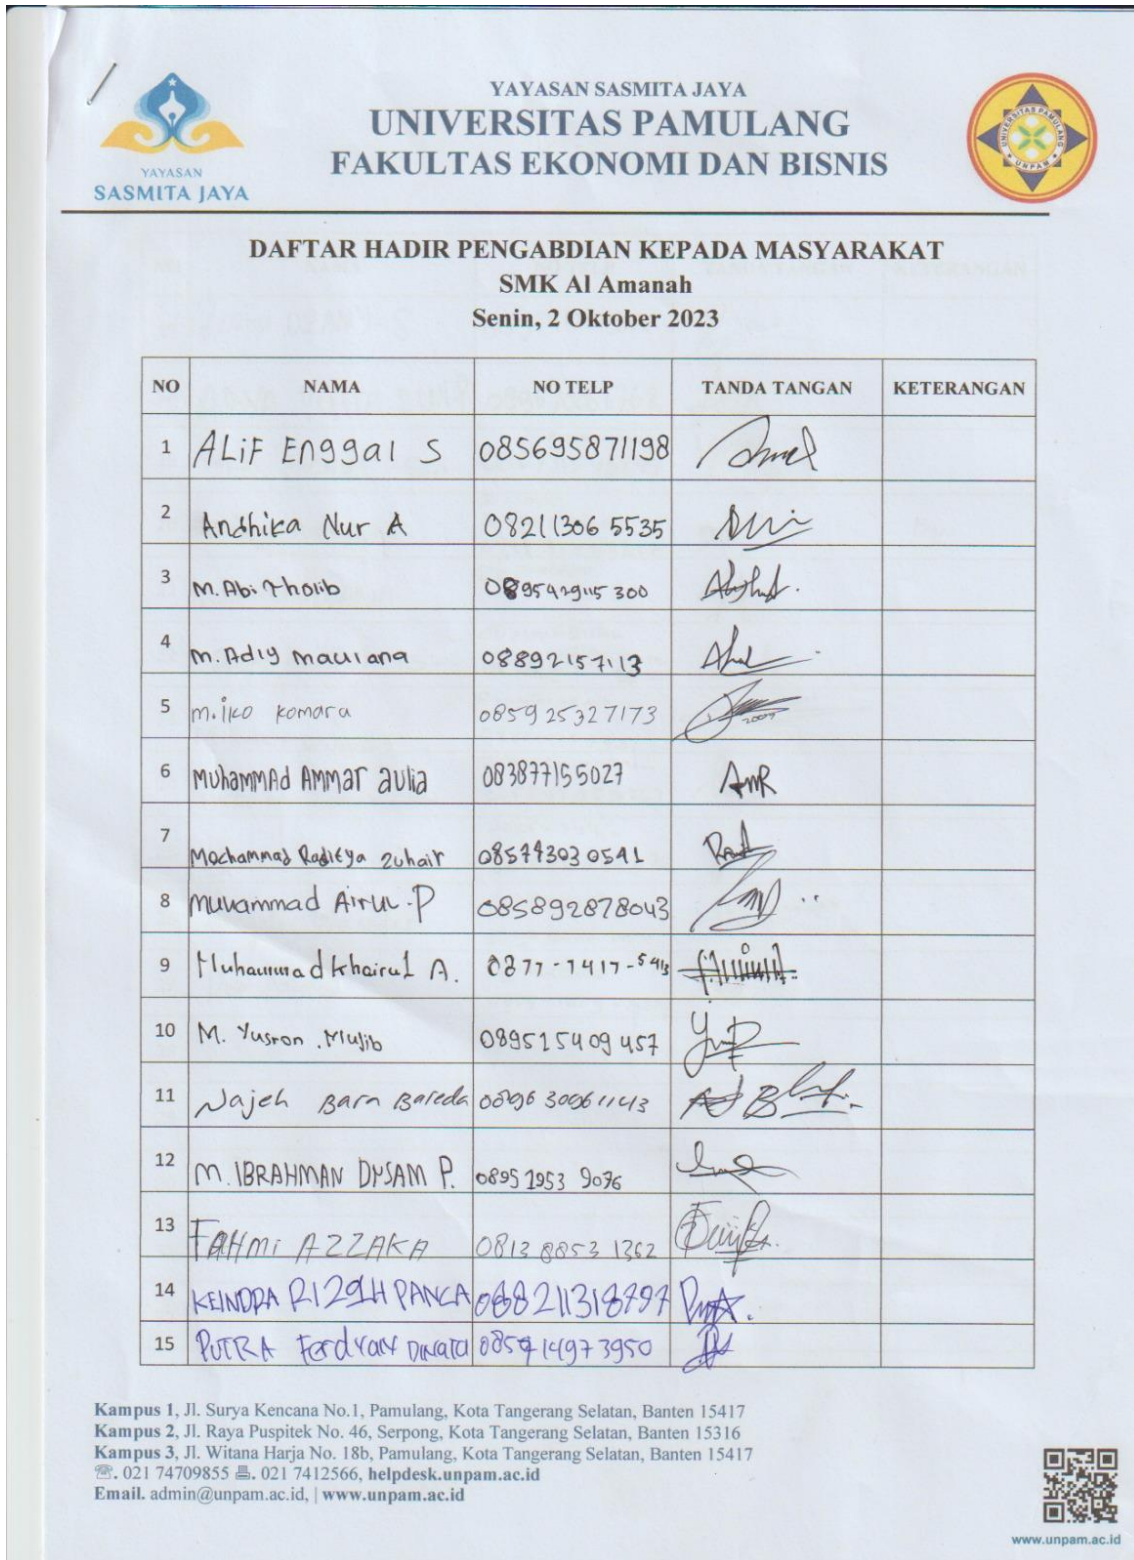 YAYASAN SASMITA JAYA
UNIVERSITAS PAMULANG
FAKULTAS EKONOMI DAN BISNIS
YAYASAN
SASMITA JAYA
UNIVERSITAS PAMULANG
UNPAM
DAFTAR HADIR PENGABDIAN KEPADA MASYARAKAT
SMK Al Amanah
Senin, 2 Oktober 2023
NO NAMA NO TELP TANDA TANGAN KETERANGAN
1 ALiF Enggal S 085695871198
2 Andhika Nur A 08211306 5535
3 M. Abi Tholib 089542915300
4 M. Adly Maulana 08892157113
5 M. iko komara 085925327173
6 Muhammad Ammar aulia 083877155027
7 Mochammad Raditya Zuhair 085773030541
8 Muhammad Airul .P 085892878043
9 Muhammad Khairul A. 0877-7417-5413
10 M. Yusron .Mujib 089515409457
11 Najeh Bara Bareda
12 M. IBRAHMAN DYSAM P. 0895 2953 9076
13 FAHMI AZZAKA 0813 8853 1362
14 KEINDRA PANCA 088211318797
15 PUTRA Ferdyan Dinata 085914973950
Kampus 1, Jl. Surya Kencana No.1, Pamulang, Kota Tangerang Selatan, Banten 15417
Kampus 2, Jl. Raya Puspitek No. 46, Serpong, Kota Tangerang Selatan, Banten 15316
Kampus 3, Jl. Witana Harja No. 18b, Pamulang, Kota Tangerang Selatan, Banten 15417
☏. 021 74709855 🖷. 021 7412566, helpdesk.unpam.ac.id
Email. admin@unpam.ac.id, | www.unpam.ac.id
www.unpam.ac.id